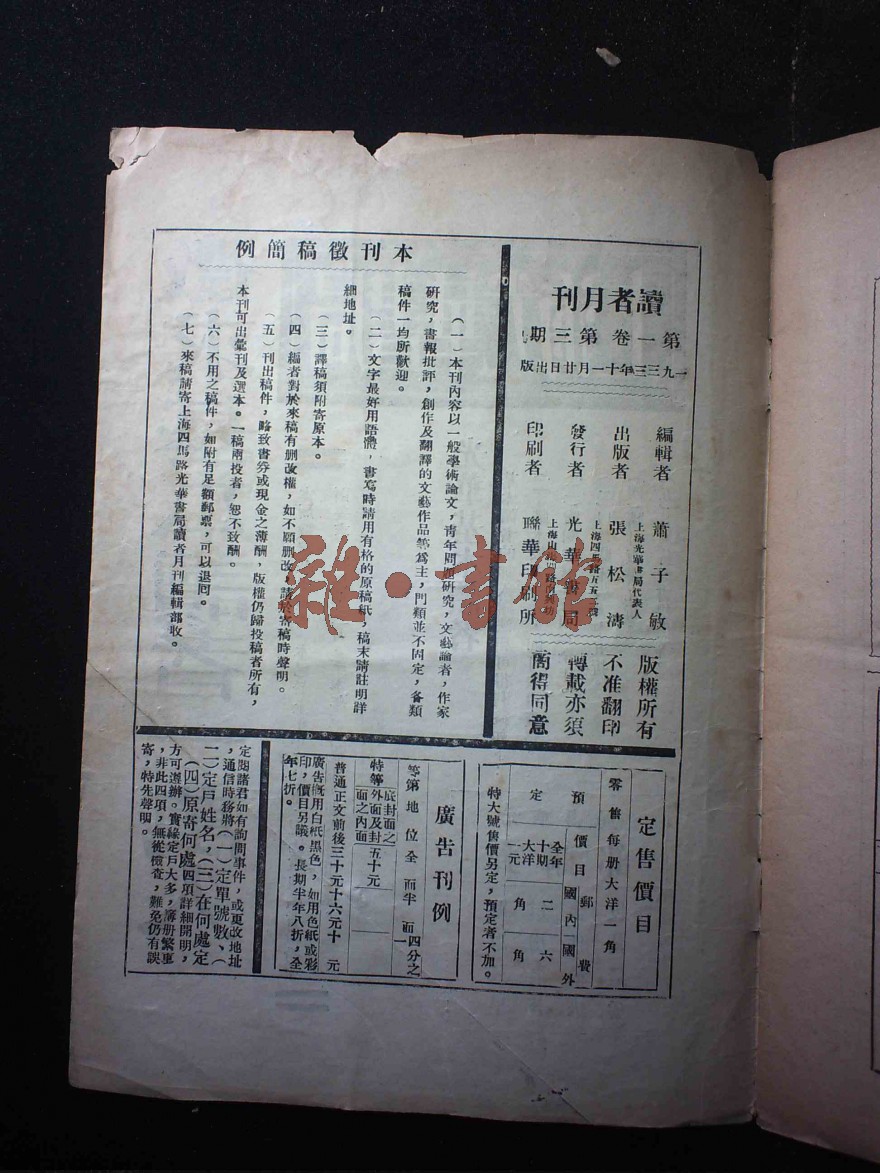 讀者月刊
第一卷第三期
一九三三年十一月廿日出版
編輯者　蕭子敏
上海光華書局代表人
出版者　張松濤
上海四馬路
發行者　光華書局
上海山
印刷者　聯華印刷所
版權所有
不准翻印
轉載亦須
得同意
本刊徵稿簡例
（一）本刊內容以一般學術論文，靑年問題研究，文藝論著，作家
研究，書報批評，創作及翻譯的文藝作品等爲主，門類並不固定，各類
稿件一均所歡迎。
（二）文字最好用語體，書寫時請用有格的原稿紙，稿末請註明詳
細地址。
（三）譯稿須附寄原本。
（四）編者對於來稿有刪改權，如不願刪改，請於寄稿時聲明。
（五）刊出稿件，略致書券或現金之薄酬，版權仍歸投稿者所有，
本刊可出彙刊及選本。一稿兩投者，恕不致酬。
（六）不用之稿件，如附有足額郵票，可以退囘。
（七）來稿請寄上海四馬路光華書局讀者月刊編輯部收。
定售價目
零售每册大洋一角
預定
價目　郵費
國內　國外
全年十期　大洋一元　二角　六角
特大號售價另定，預定者不加。
廣告刊例
等第　地位　全面　半面　四分之一
特等　底封面之外面及封面之內面　五十元
普通　正文前後　三十元　十六元　十元
廣告槪用白紙黑色，如用色紙或彩
印，價目另議。長期半年八折，全
年七折。
定閱諸君如有詢問事件，或更改地址
，通信時務將（一）定單號數、（
二）定戶姓名，（三）在何處定
（四）原寄何處四項詳細開明，
方可遵辦。實緣定戶大多，簿册繁重
，非此四項，無從檢查，難免仍有誤
寄，特先聲明。
雜·書館